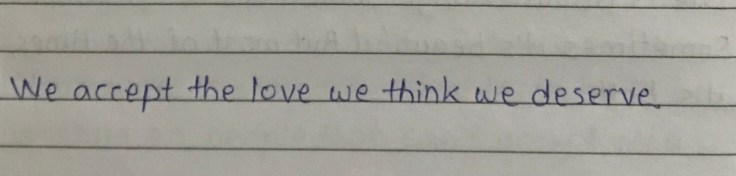 We accept the love we think we deserve.